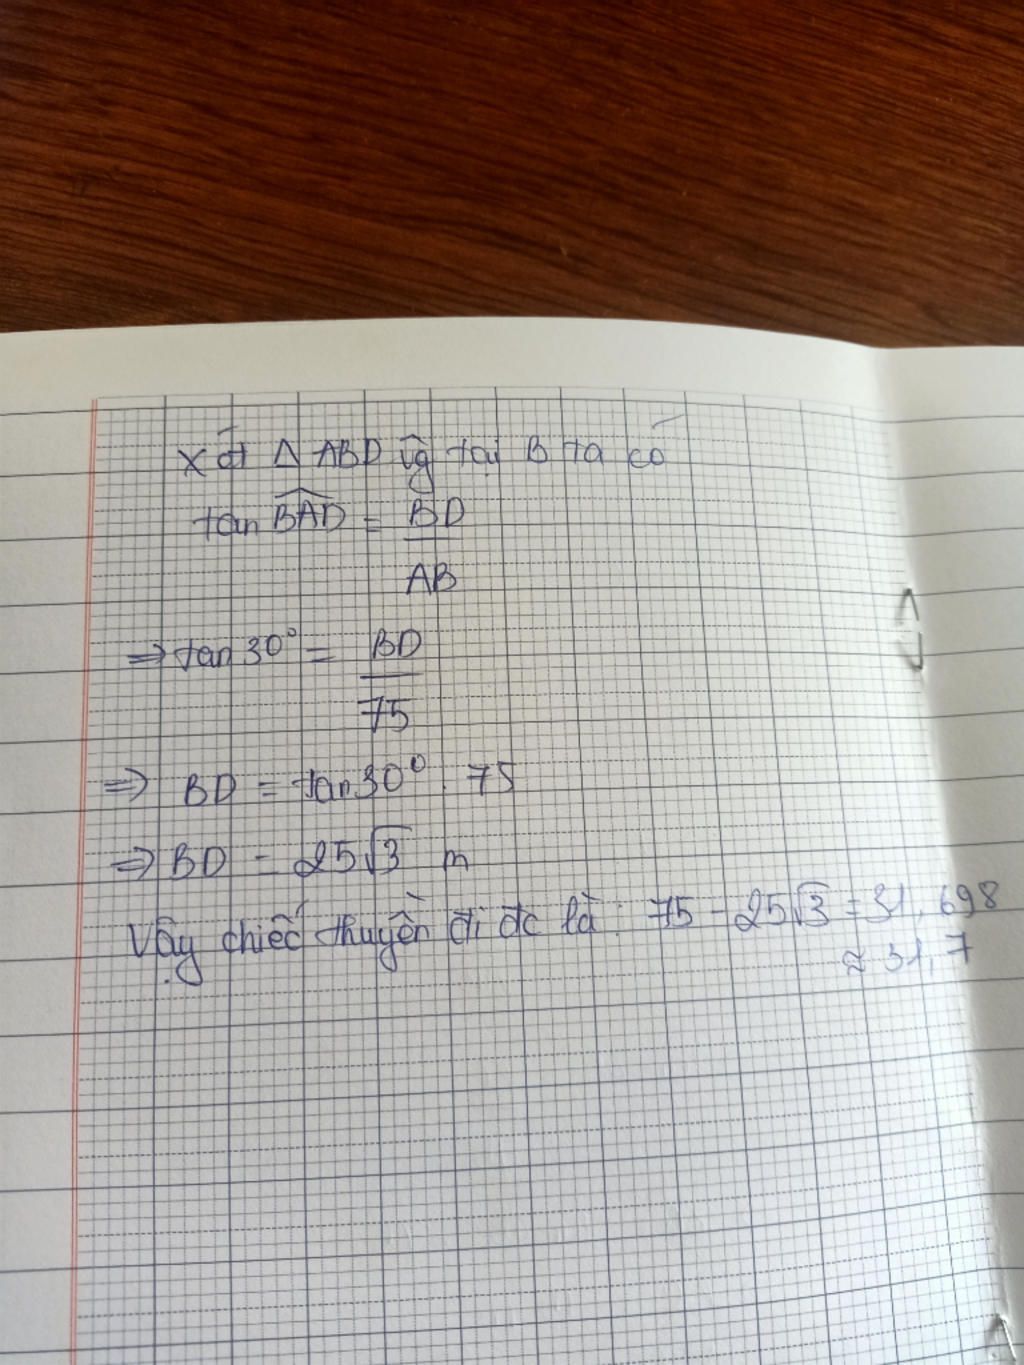 xét Δ ABD vg tại B ta có
tan BAD^ = BD
AB
=> tan 30° = BD
75
=> BD = tan 30° . 75
=> BD = 25√3 m
Vậy chiếc thuyền đi đc là : 75 - 25√3 = 31,698
≈ 31,7